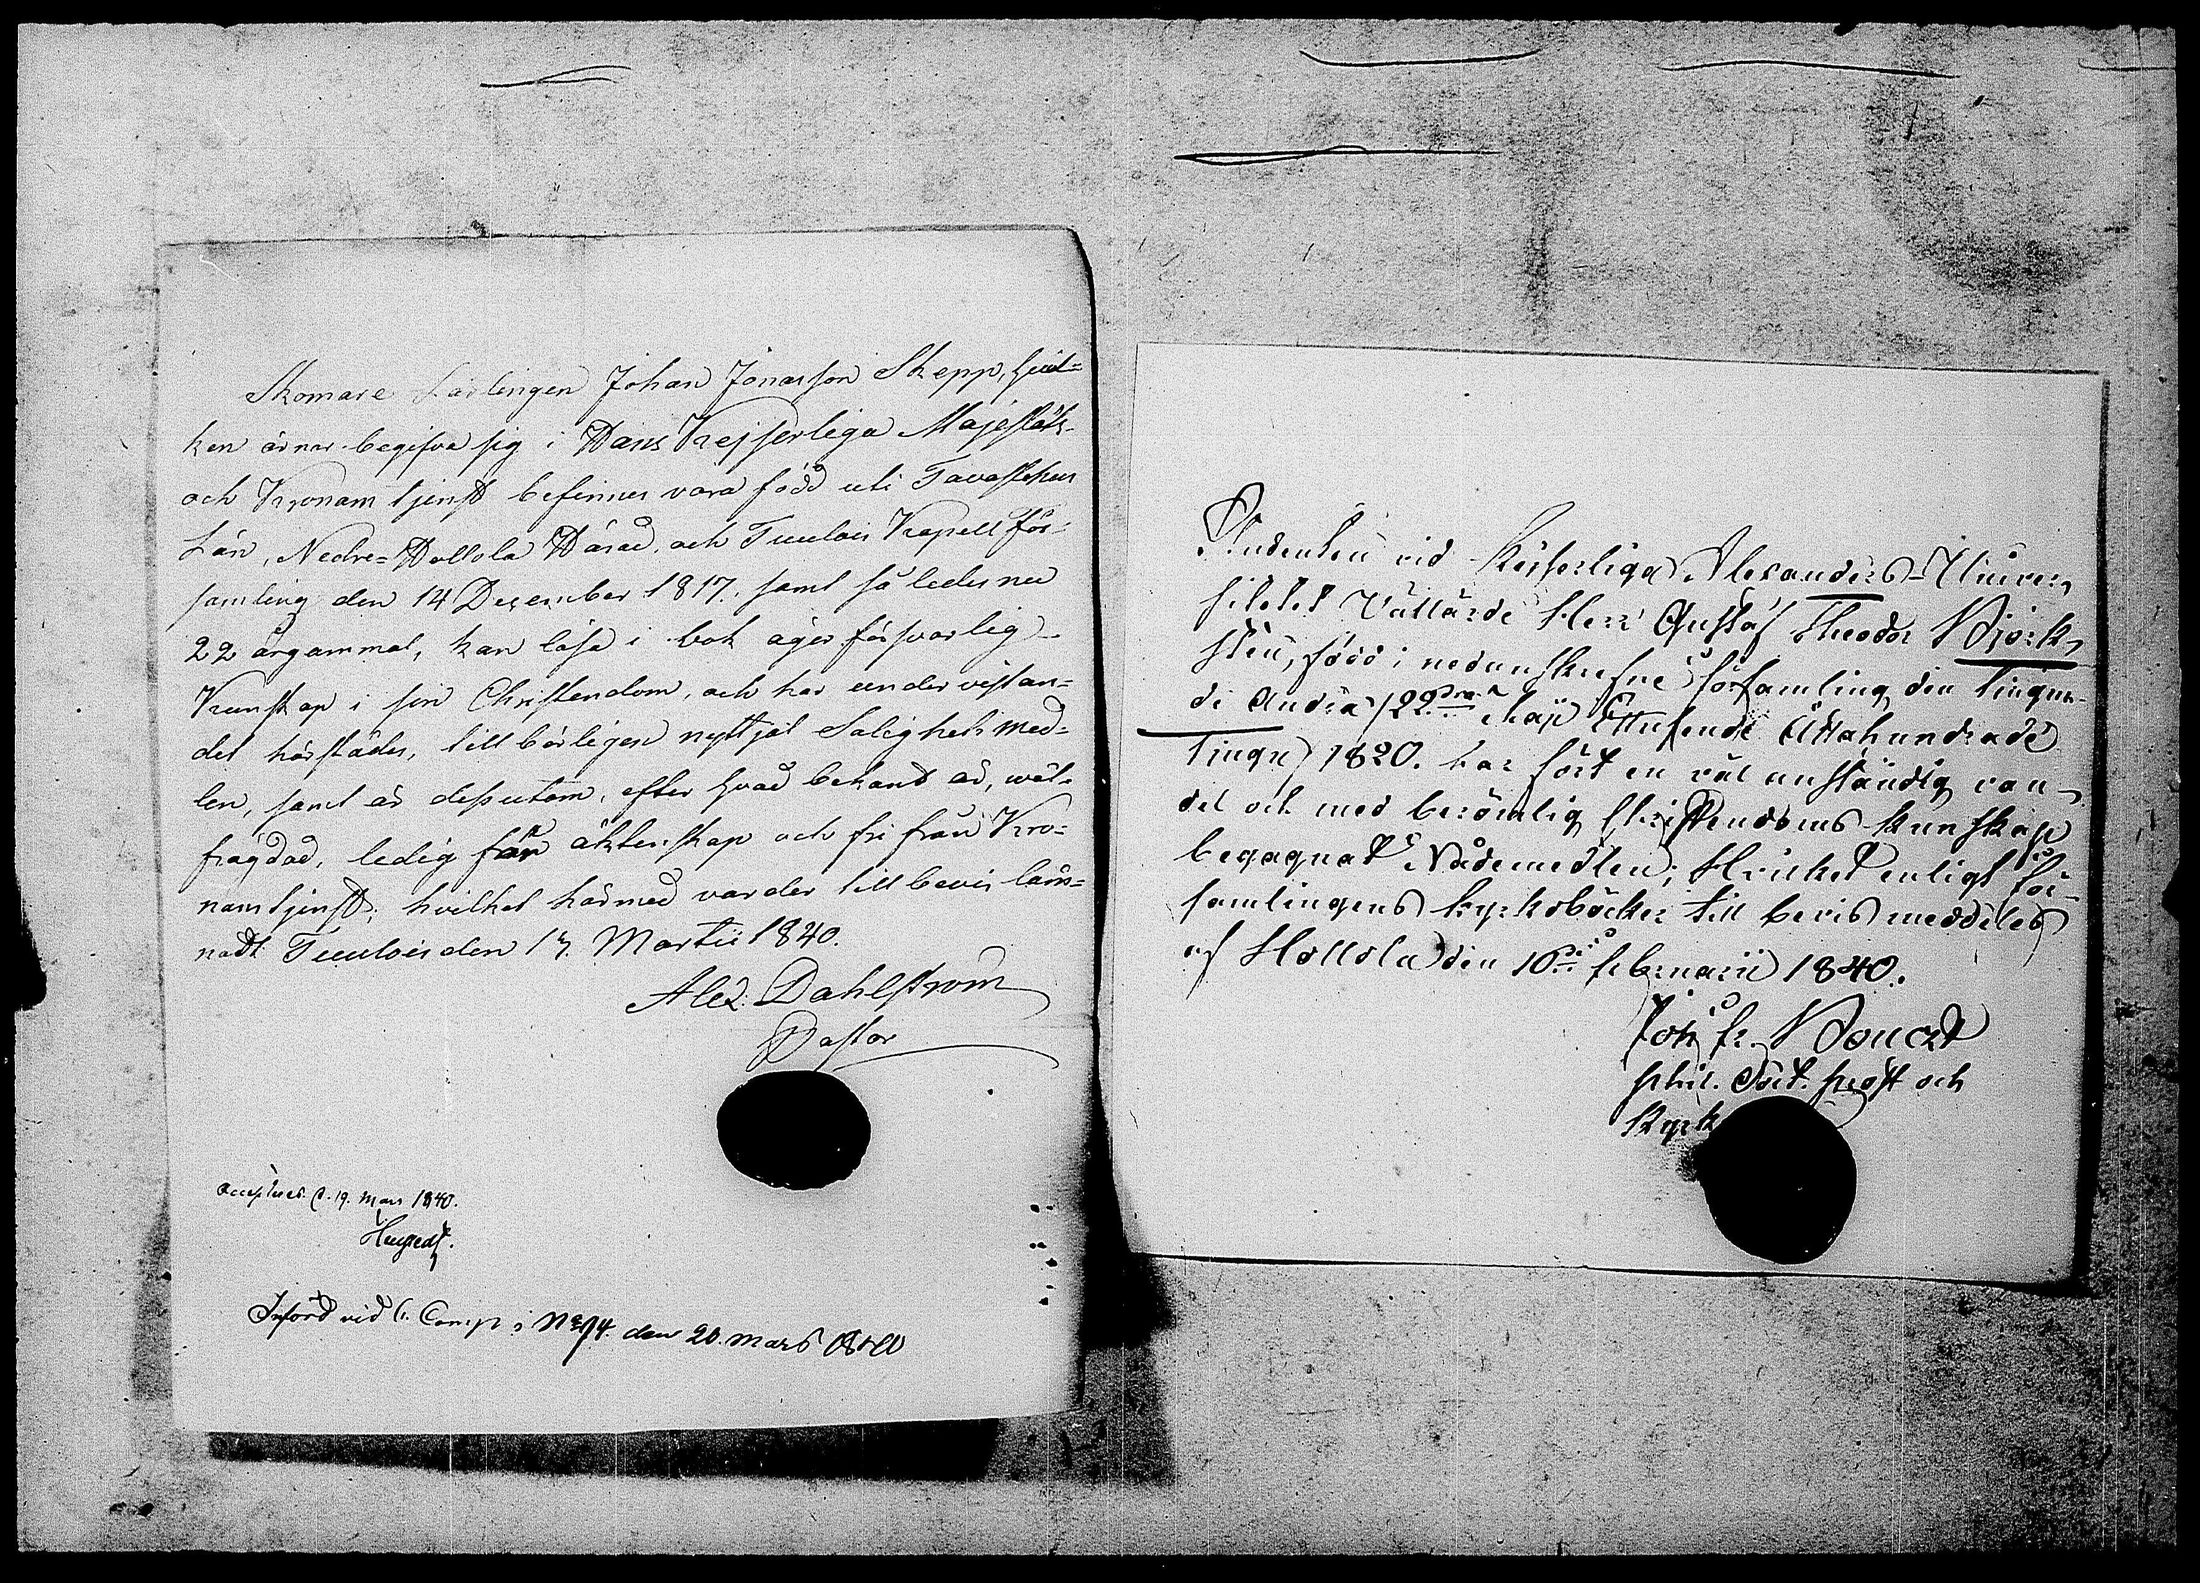 Skomare Lärlingen Johan Jonasson Skepp, hvil-
ken ärnar begifva sig i Hans Kejserliga Majestäts-
och Kronans tjenst befinnes vara född uti Tavastehus
Län, Nedre-Hollola Härad, och Tuulois Kapell för-
samling den 14 December 1817, samt således nu
22 år gammal, kan läsa i bok äger försvarlig
Kunskap i sin Christendom, och har under vistan-
det härstädes, tillbörligen nyttjat Salighets med-
len, samt är dessutom, efter hvad bekant är, wäl-
frägdad, ledig från äktenskap och fri från Kro-
nans tjenst; hvilket härmed varder till bevis läm-
nadt. Tuulois den 15. Martii 1840.
Alex. Dahlström
Pastor
Accepteras d. 19. Mars 1840.
Införd vid 6. Comp. i No 94. den 20. Mars 1840
Studenten vid Kejserliga Alexanders-Univer-
sitetet Vällärde Herr Gustaf Theodor Björk-
sten, född i nedanskrefne församling den tiugu-
de Andra /22dra/ Maji Ettusende Åttahundrade
tiugu) 1820. har fört en väl anständig van-
del och med berömlig Christendoms kunskap
begagnat Nådemedlen; Hvilket enligt för-
samlingens kyrkoböcker till bevis meddelas
af Hollola den 10de Februarii 1840.
Joh. Fr. Bonsdt
Phil. Doct. Prost och
Kyrk